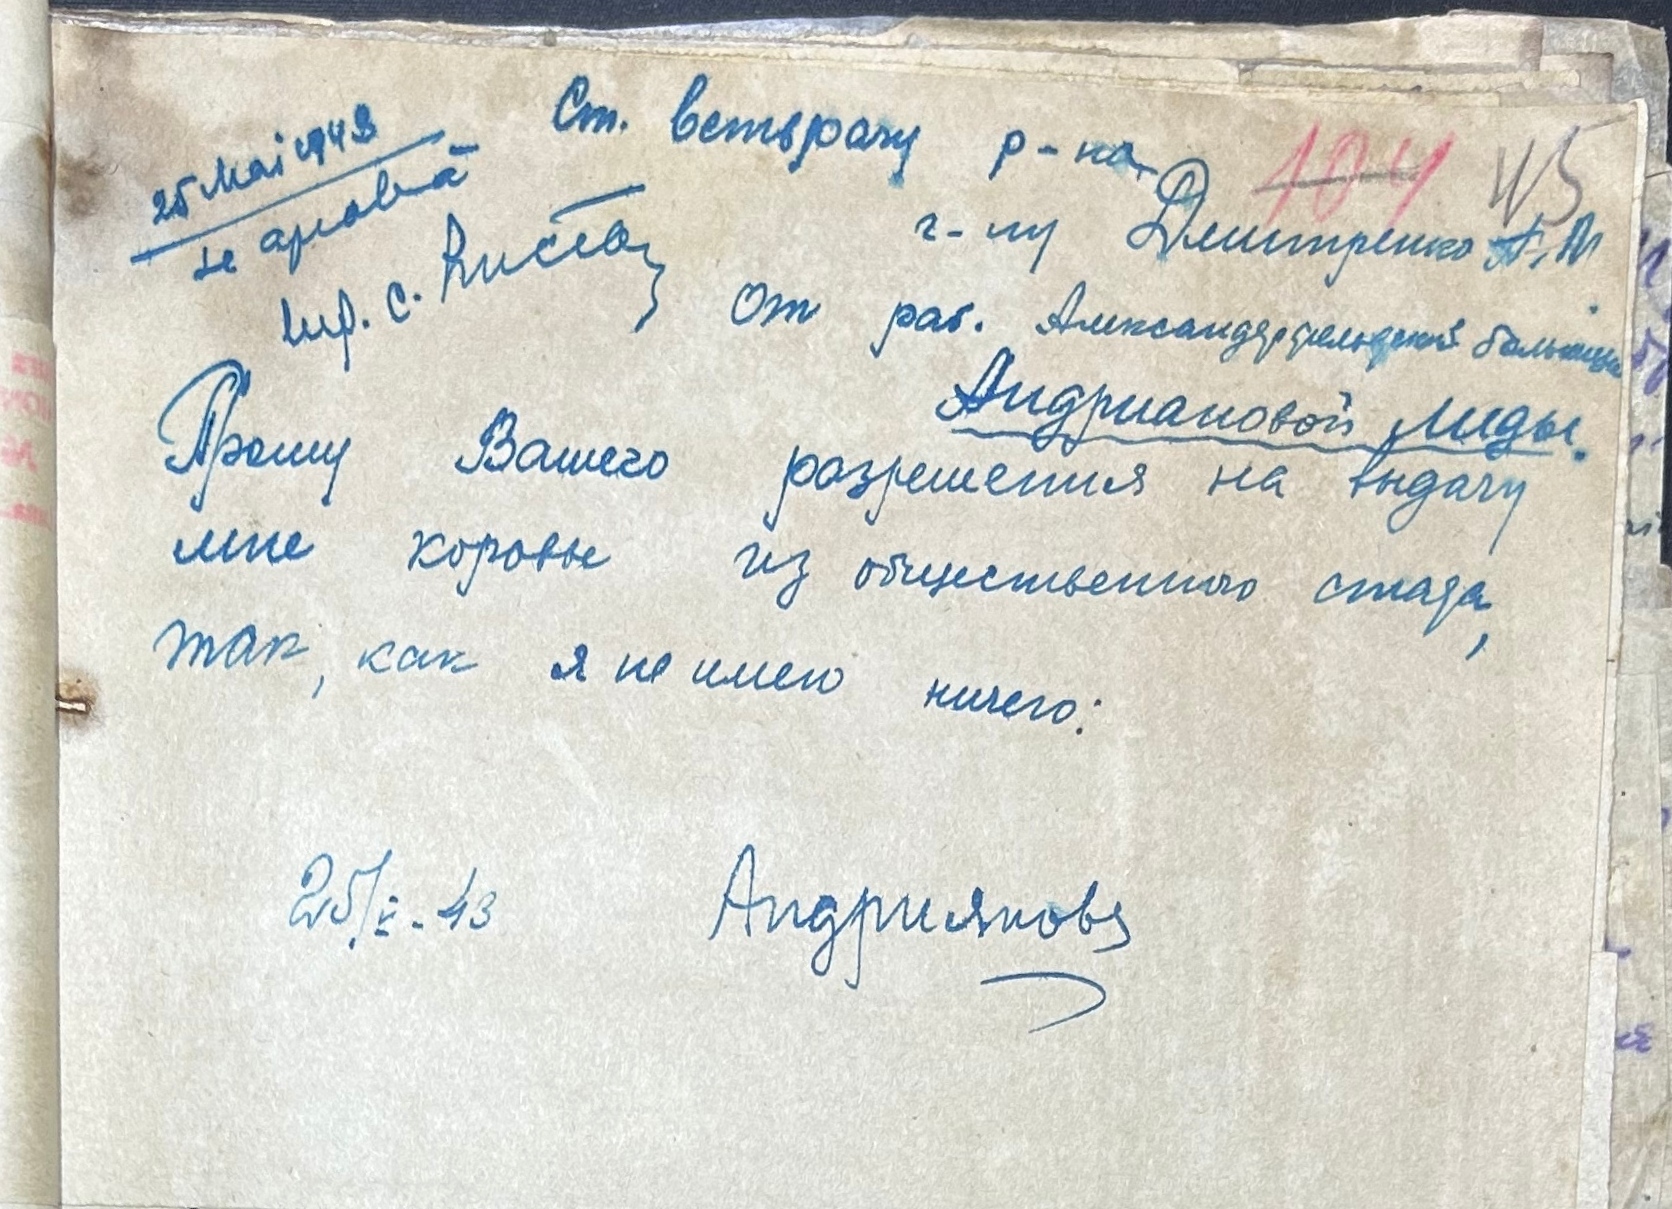 25 Mai 1943
se aprobă
Ст. ветврачу р-на
104 45
г-ну Дмитренко А.М
От раб. Александерфельдской больницы
Андриановой Лиды.
Прошу Вашего разрешения на выдачу
мне коровы из общественного стада,
так, как я не имею ничего:
25/V-43 Андриянова